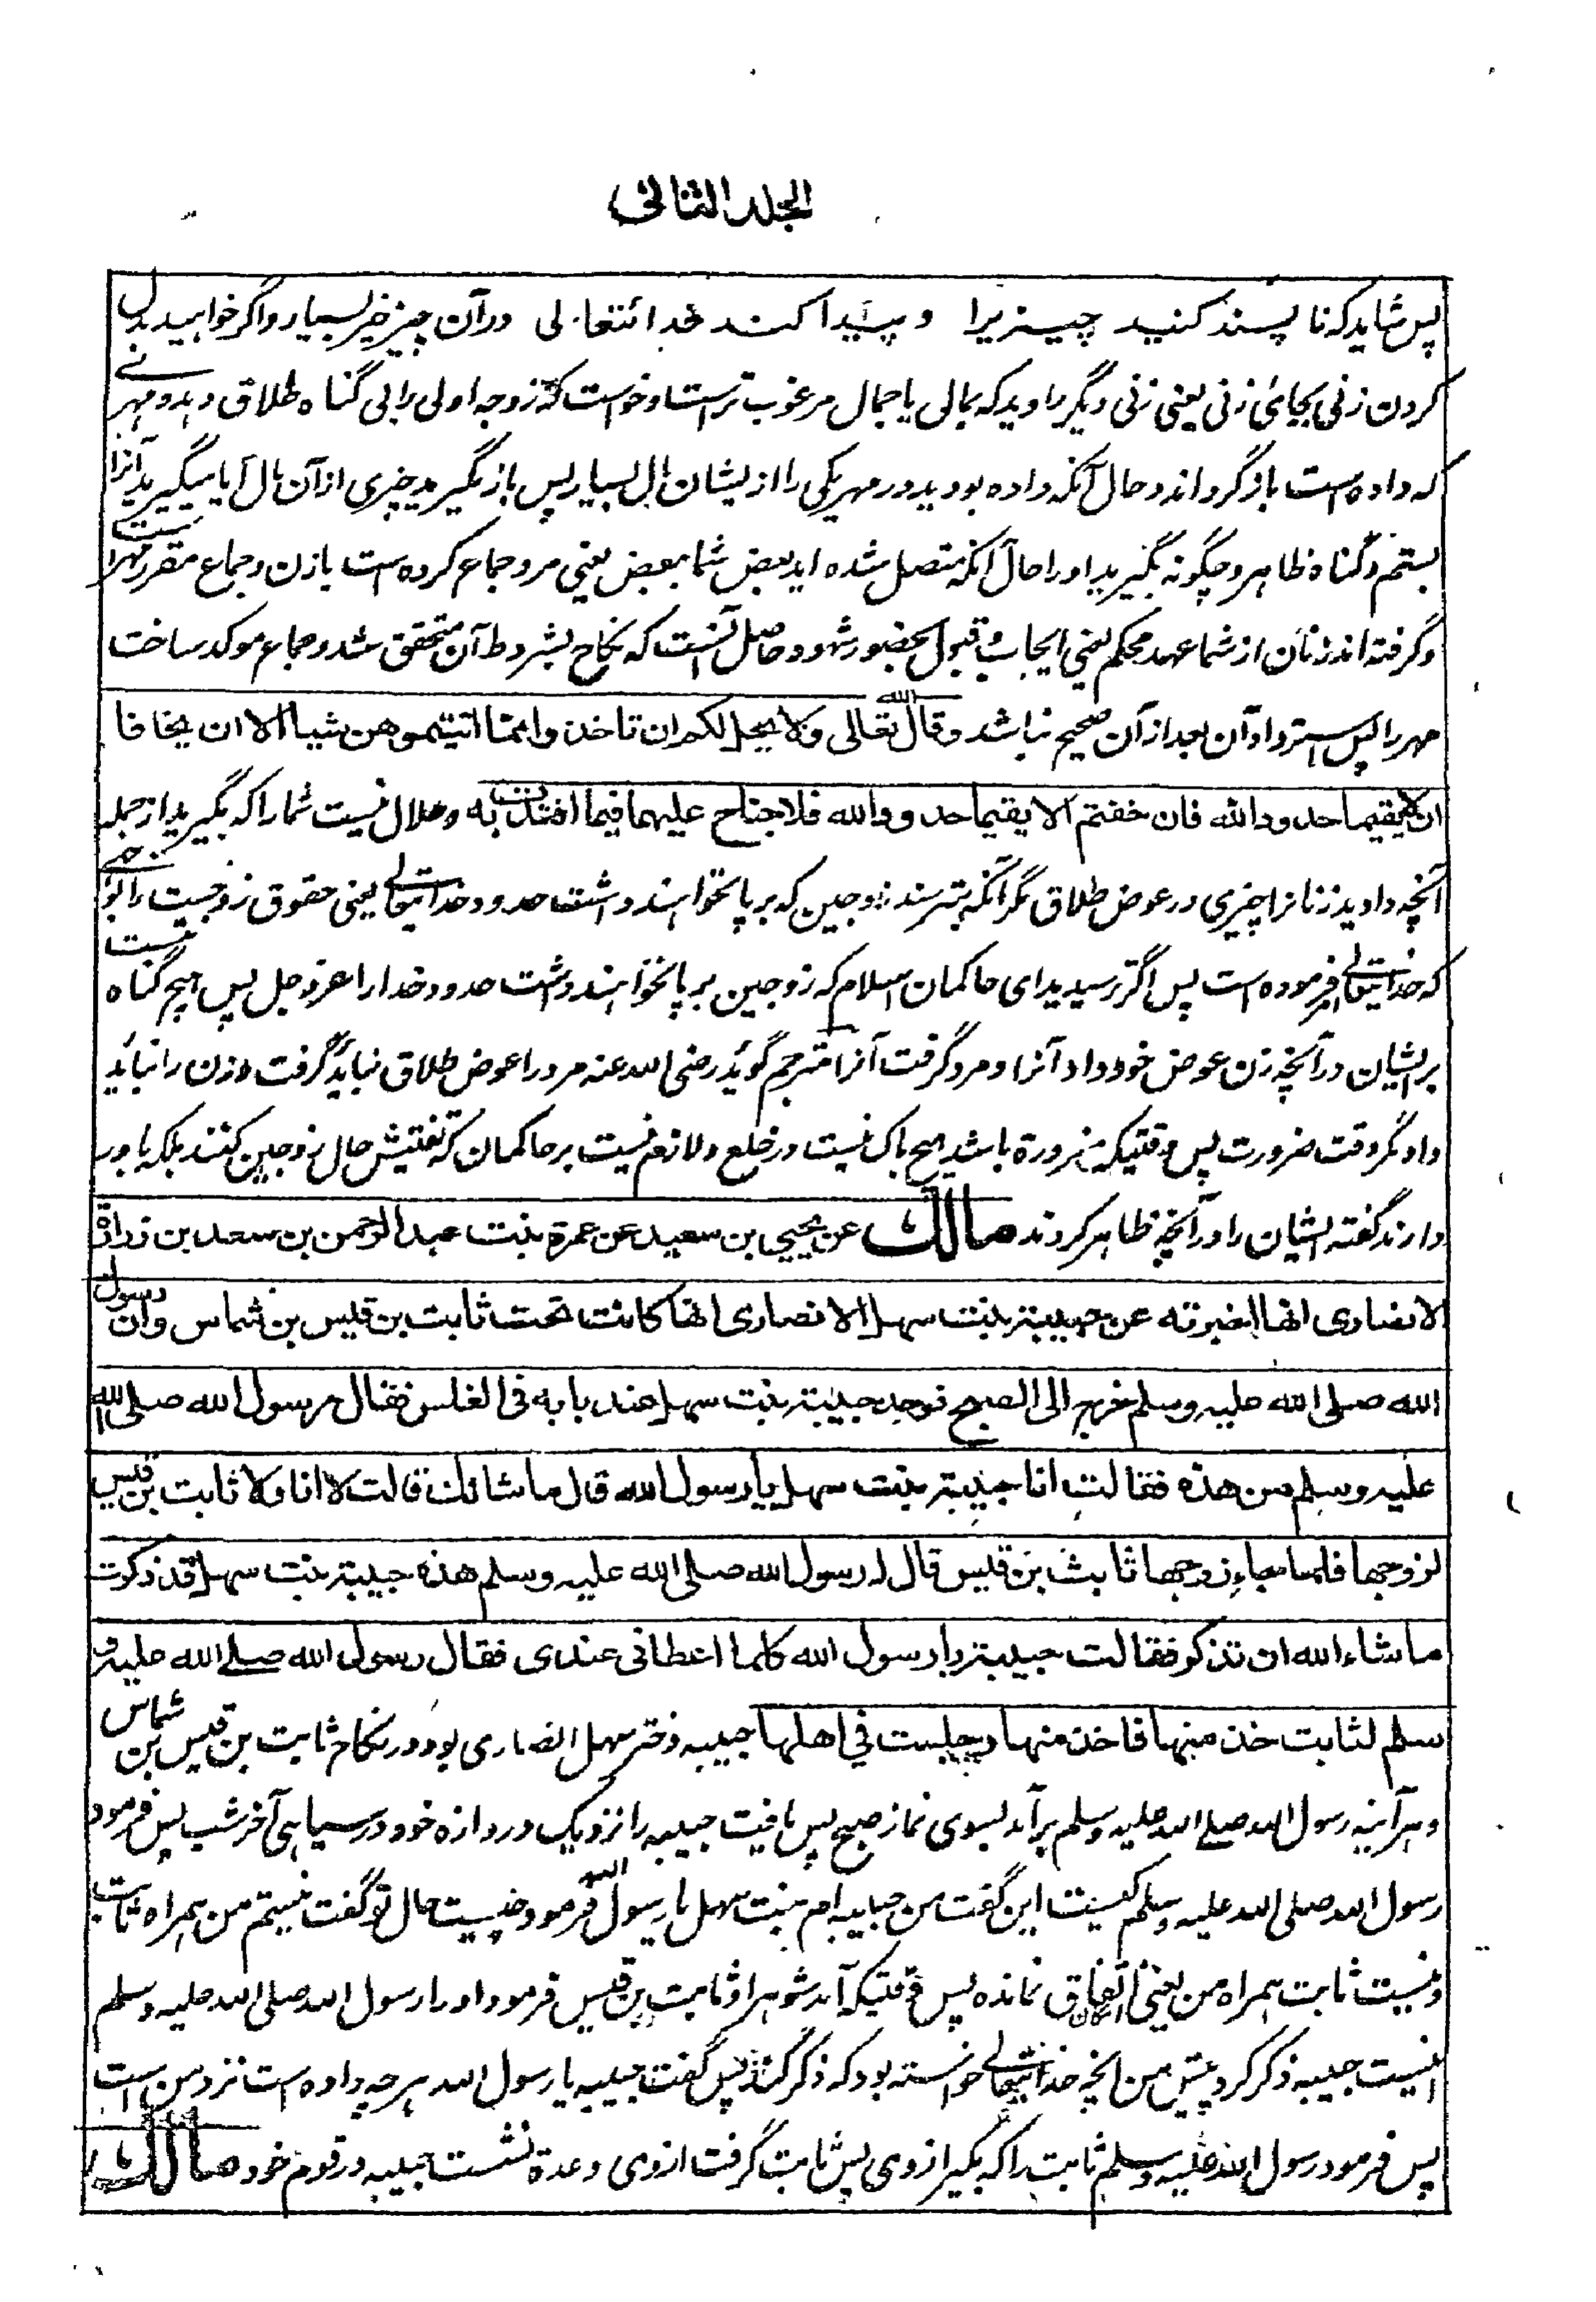 الجلد الثانی
پس شاید که ناپسند کنید چیزیرا و پیدا کند خدائتعالی در آن چیز خیر بسیار و اگر خواهید بدل
کردن زنی بجای زنی یعنی زنی دیگر را دید که بمالی یا جمال مرغوب تر است و خواست که زوجه اولی را بی گناه طلاق دهد و مهری
که داده است باز گرداند و حال آنکه داده بودید در مهر یکی را از ایشان مال بسیار پس باز نگیرید چیزی از آن مال آیا میگیرید آنرا
بستم و گناه ظاهر و چگونه بگیرید او را حال آنکه متصل شده اید بعض شما ببعض یعنی مرد جماع کرده است بازن و جماع مقرر مهر است
و گرفته اند زنان از شما عهد محکم یعنی ایجاب و قبول بحضور شهود و حاصل آنست که نکاح بشروط آن متحقق شد و جماع موکد ساخت
مهر را پس استرداد آن بعد از آن صحیح نباشد وقال الله تعالی ولا یحل لکم ان تاخذوا مما اتیتموهن شیاا الا ان یخافا
ان لا یقیما حدود الله فان خفتم الا یقیما حدود الله فلا جناح علیهما فیما افتدت به و حلال نیست شما را که بگیرید از جمله
آنچه دادید زنانرا چیزی در عوض طلاق مگر آنکه بترسند زوجین که بر پا نخواهند داشت حدود خدایتعالے یعنی حقوق زوجیت را بوجهی
که خدایتعالے فرموده است پس اگر ترسیدید ای حاکمان اسلام که زوجین بر پا نخواهند داشت حدود خدا را عز و جل پس هیچ گناه نیست
بر ایشان در آنچه زن عوض خود داد آنرا و مرد گرفت آنرا مترجم گوید رضی الله عنه مرد را عوض طلاق نباید گرفت و زن را نباید
داد مگر وقت ضرورت پس وقتیکه ضرورة باشد هیچ باک نیست در خلع و لازم نیست بر حاکمان که تفتیش حال زوجین کنند بلکه باور
دارند گفته ایشان را در آنچه ظاهر کردند مالك عن یحیی بن سعید عن عمرة بنت عبد الرحمن بن سعد بن زرارة
الانصاری انها اخبرته عن حبیبة بنت سهل الانصاری انها کانت تحت ثابت بن قیس بن شماس وان رسول
الله صلی الله علیه وسلم خرج الی الصبح فوجد حبیبة بنت سهل عند بابه فی الغلس فقال رسول الله صلی الله
علیه وسلم من هذه فقالت انا حبیبة بنت سهل یا رسول الله قال ما شانك قالت لا انا ولا ثابت بن قیس
لزوجها فلما جاء زوجها ثابت بن قیس قال له رسول الله صلی الله علیه وسلم هذه حبیبة بنت سهل قد ذکرت
ما شاء الله ان تذکر فقالت حبیبة یا رسول الله کلما اعطانی عندی فقال رسول الله صلے الله علیه و
سلم لثابت خذ منها فاخذ منها وجلست فی اهلها حبیبه دختر سهل انصاری بود در نکاح ثابت بن قیس بن شماس
و هر آئینه رسول الله صلے الله علیه وسلم بر آمد بسوی نماز صبح پس یافت حبیبه را نزدیک دروازه خود در سیاهی آخر شب پس فرمود
رسول الله صلی الله علیه وسلم کیست این گفت من حبیبه ام بنت سهل یا رسول الله فرمود چیست حال تو گفت نیستم من همراه ثابت
و نیست ثابت همراه من یعنی امکان اتفاق نمانده پس وقتیکه آمد شوهر او ثابت بن قیس فرمود او را رسول الله صلی الله علیه وسلم
اینست حبیبه ذکر کرد پیش من انچه خدایتعالے خواسته بود که ذکر کند پس گفت حبیبه یا رسول الله هر چه داده است نزد من است
پس فرمود رسول الله صلی الله علیه وسلم ثابت را که بگیر از وی پس ثابت گرفت از وی و عدة نشست حبیبه در قوم خود مالك